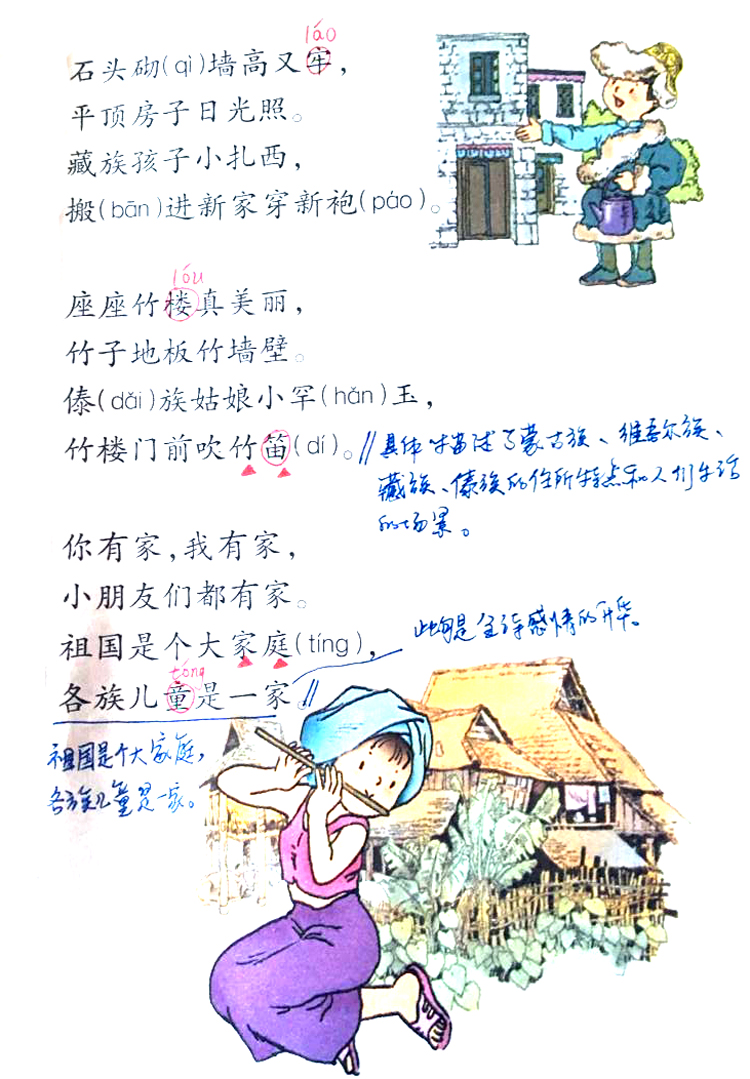 láo
石头砌(qì)墙高又牢，
平顶房子日光照。
藏族孩子小扎西，
搬(bān)进新家穿新袍(páo)。
lóu
座座竹楼真美丽，
竹子地板竹墙壁。
傣(dǎi)族姑娘小罕(hǎn)玉，
竹楼门前吹竹笛(dí)。
具体描述了蒙古族、维吾尔族、
藏族、傣族的住所特点和人们生活
的场景。
你有家，我有家，
小朋友们都有家。
祖国是个大家庭(tíng)，
此句是全诗感情的升华。
tóng
各族儿童是一家。
祖国是个大家庭，
各族儿童是一家。